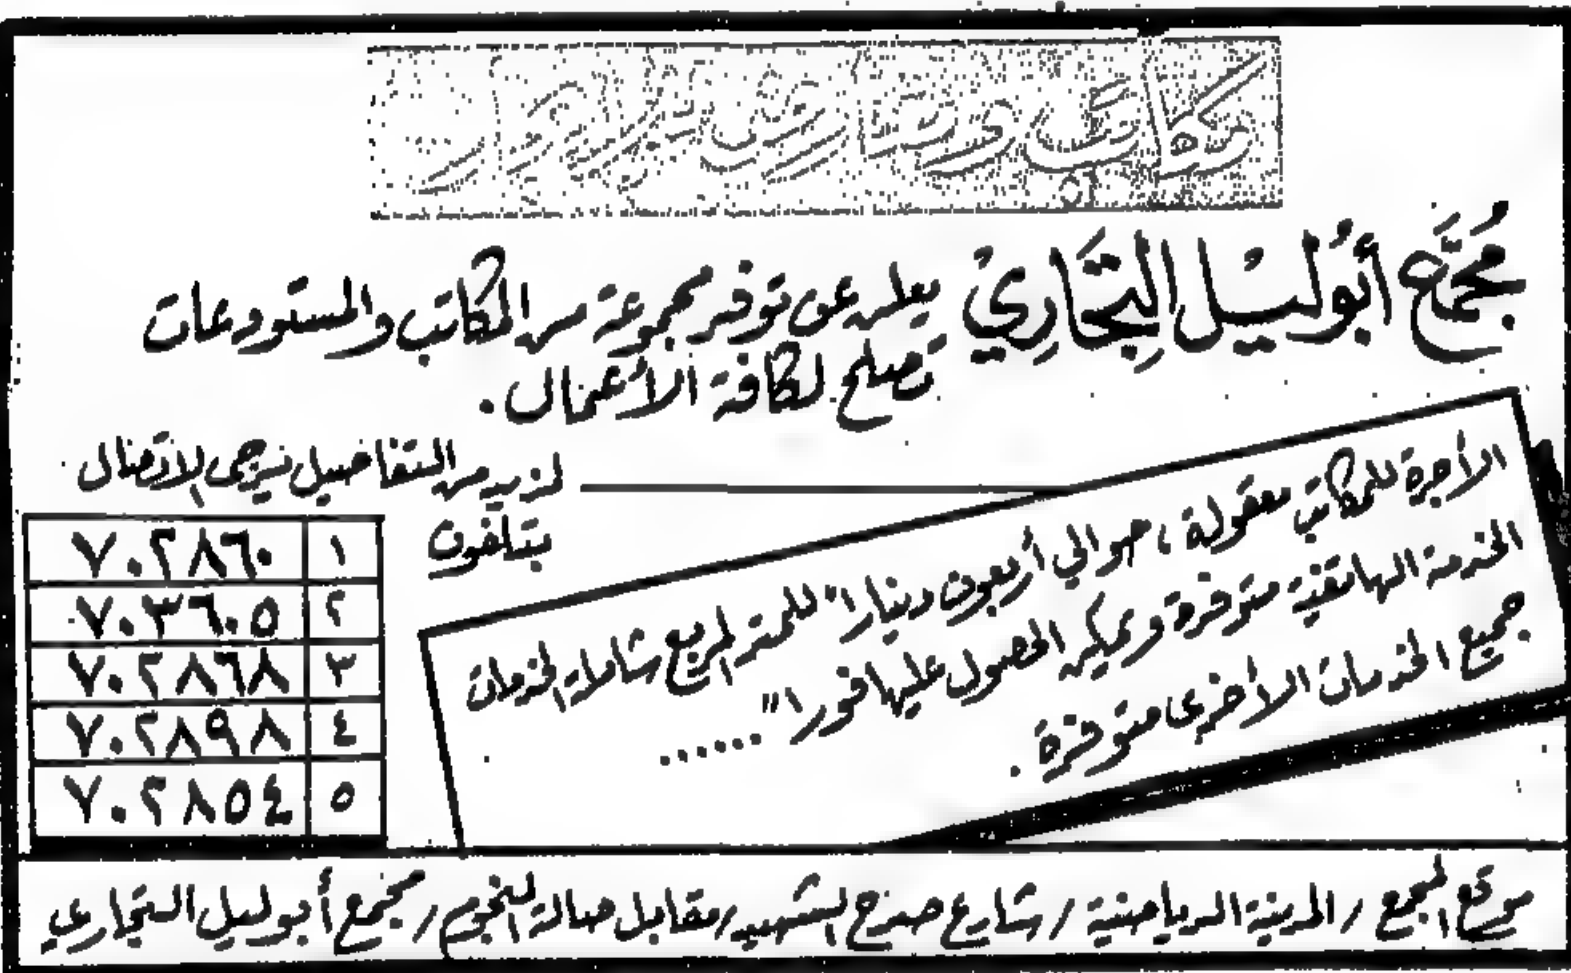 مكاتب ومعارض للإيجار
مُجَمَّع أَبُو ليْل التِّجَارِيْ يعلن عن توفر مجموعة من المكاتب والمستودعات
تصلح لكافة الأعمال.
لمزيد من التفاصيل يرجى الاتصال
بتلفون
١ ٧٠٢٨٦٠
٢ ٧٠٣٦٠٥
٣ ٧٠٢٨٦٨
٤ ٧٠٢٨٩٨
٥ ٧٠٢٨٥٤
الأجرة للمكاتب معقولة، حوالي أربعون ديناراً للمتر المربع شاملة الخدمات
الخدمة الهاتفية متوفرة ويمكن الحصول عليها فوراً ......
جميع الخدمات الأخرى متوفرة.
موقع المجمع / المدينة الرياضية / شارع صرح الشهيد / مقابل صالة النجوم / مجمع أبو ليل التجاري